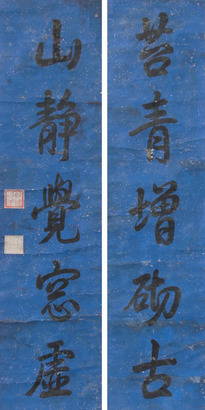 苔青增砌古
山静覺窓虛